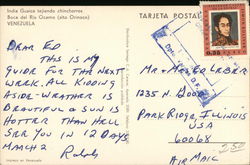 India Guaica tejiendo chinchorros
Boca del Río Ocamo (alto Orinoco)
VENEZUELA
TARJETA POSTAL
DEAR ED
THIS IS MY
GUIDE FOR THE NEXT
WEEK, ALL KIDDING
ASIDE - WEATHER IS
BEAUTIFUL & SUN IS
HOTTER THAN HELL
SEE YOU IN 12 DAYS
MARCH 2
Ralph
MR + MRS
1235 N. GOOD
PARK RIDGE, ILLINOIS
USA
60068
AIR MAIL
2.50